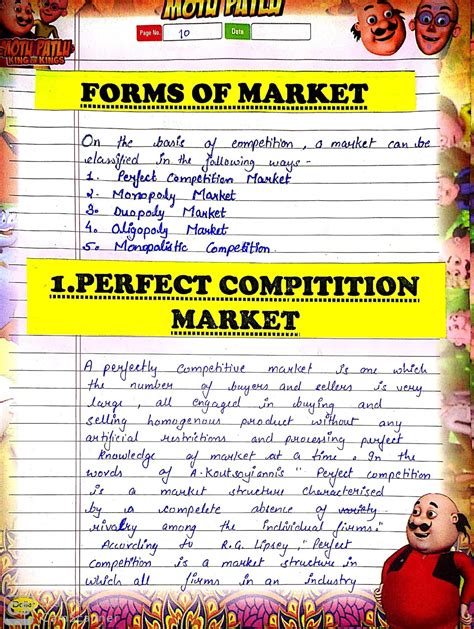 MOTU PATLU
Page No. 10 Date
MOTU PATLU
KING OF KINGS
FORMS OF MARKET
On the basis of competition, a market can be
classified in the following ways -
1. Perfect Competition Market
2. Monopoly Market
3. Duopoly Market
4. Oligopoly Market
5. Monopalistic Competition
1.PERFECT COMPITITION
MARKET
A perfectly competitive market is one which
the number of buyers and sellers is very
large, all engaged in buying and
selling homogenous product without any
artificial restrictions and processing perfect
knowledge of market at a time. In the
words of A. Koutsoyiannis " Perfect competition
is a market structure characterised
by a complete absence of variety
rivalry among the individual firms."
According to R.G. Lipsey, "Perfect
competition is a market structure in
which all firms in an industry